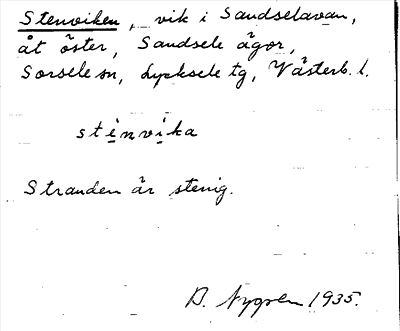 Stenviken, vik i Sandselavan,
åt öster, Sandsele ägor,
Sorsele sn, Lycksele tg, Västerb. l.
stinvika
Stranden är stenig.
D. Nygren 1935.